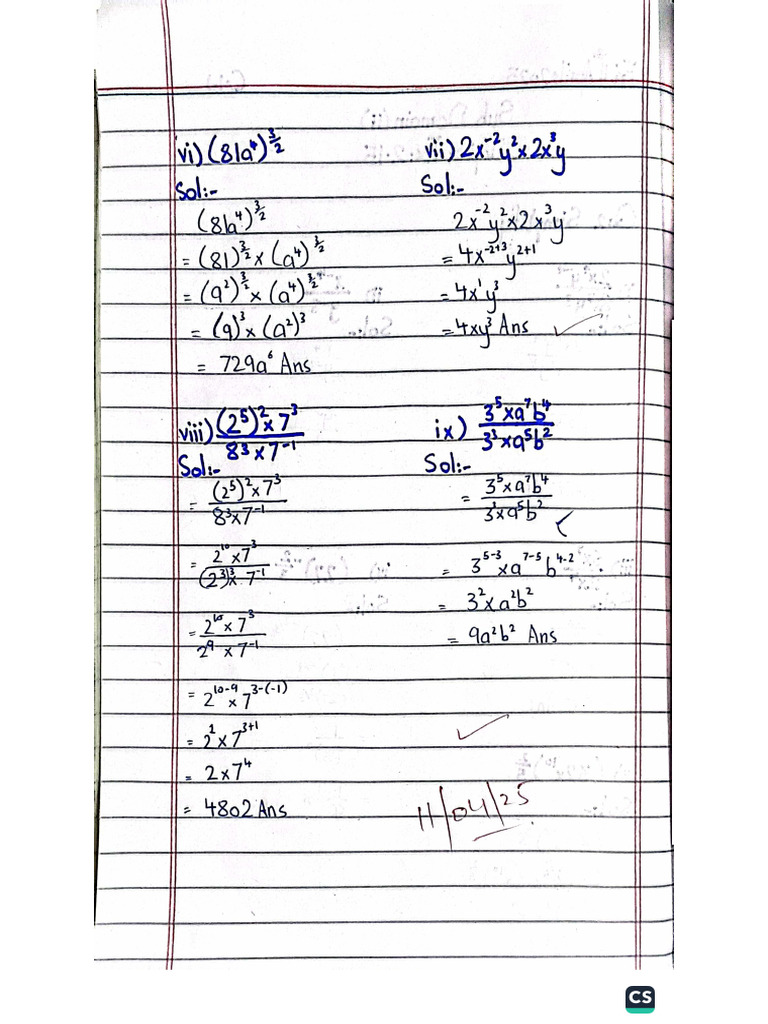 vi) (81a⁴)^(3/2)
Sol:-
(81a⁴)^(3/2)
= (81)^(3/2) × (a⁴)^(3/2)
= (9²)^(3/2) × (a⁴)^(3/2)
= (9)³ × (a²)³
= 729a⁶ Ans
vii) 2x⁻²y² × 2x³y
Sol:-
2x⁻²y² × 2x³y
= 4x⁻²⁺³y²⁺¹
= 4x¹y³
= 4xy³ Ans
viii) (2⁵)² × 7³ / 8³ × 7⁻¹
Sol:-
= (2⁵)² × 7³ / 8³ × 7⁻¹
= 2¹⁰ × 7³ / (2³)³ × 7⁻¹
= 2¹⁰ × 7³ / 2⁹ × 7⁻¹
= 2¹⁰⁻⁹ × 7³⁻⁽⁻¹⁾
= 2¹ × 7³⁺¹
= 2 × 7⁴
= 4802 Ans
ix) 3⁵ × a⁷b⁴ / 3³ × a⁵b²
Sol:-
= 3⁵ × a⁷b⁴ / 3³ × a⁵b²
= 3⁵⁻³ × a⁷⁻⁵ b⁴⁻²
= 3² × a²b²
= 9a²b² Ans
11/04/25
CS